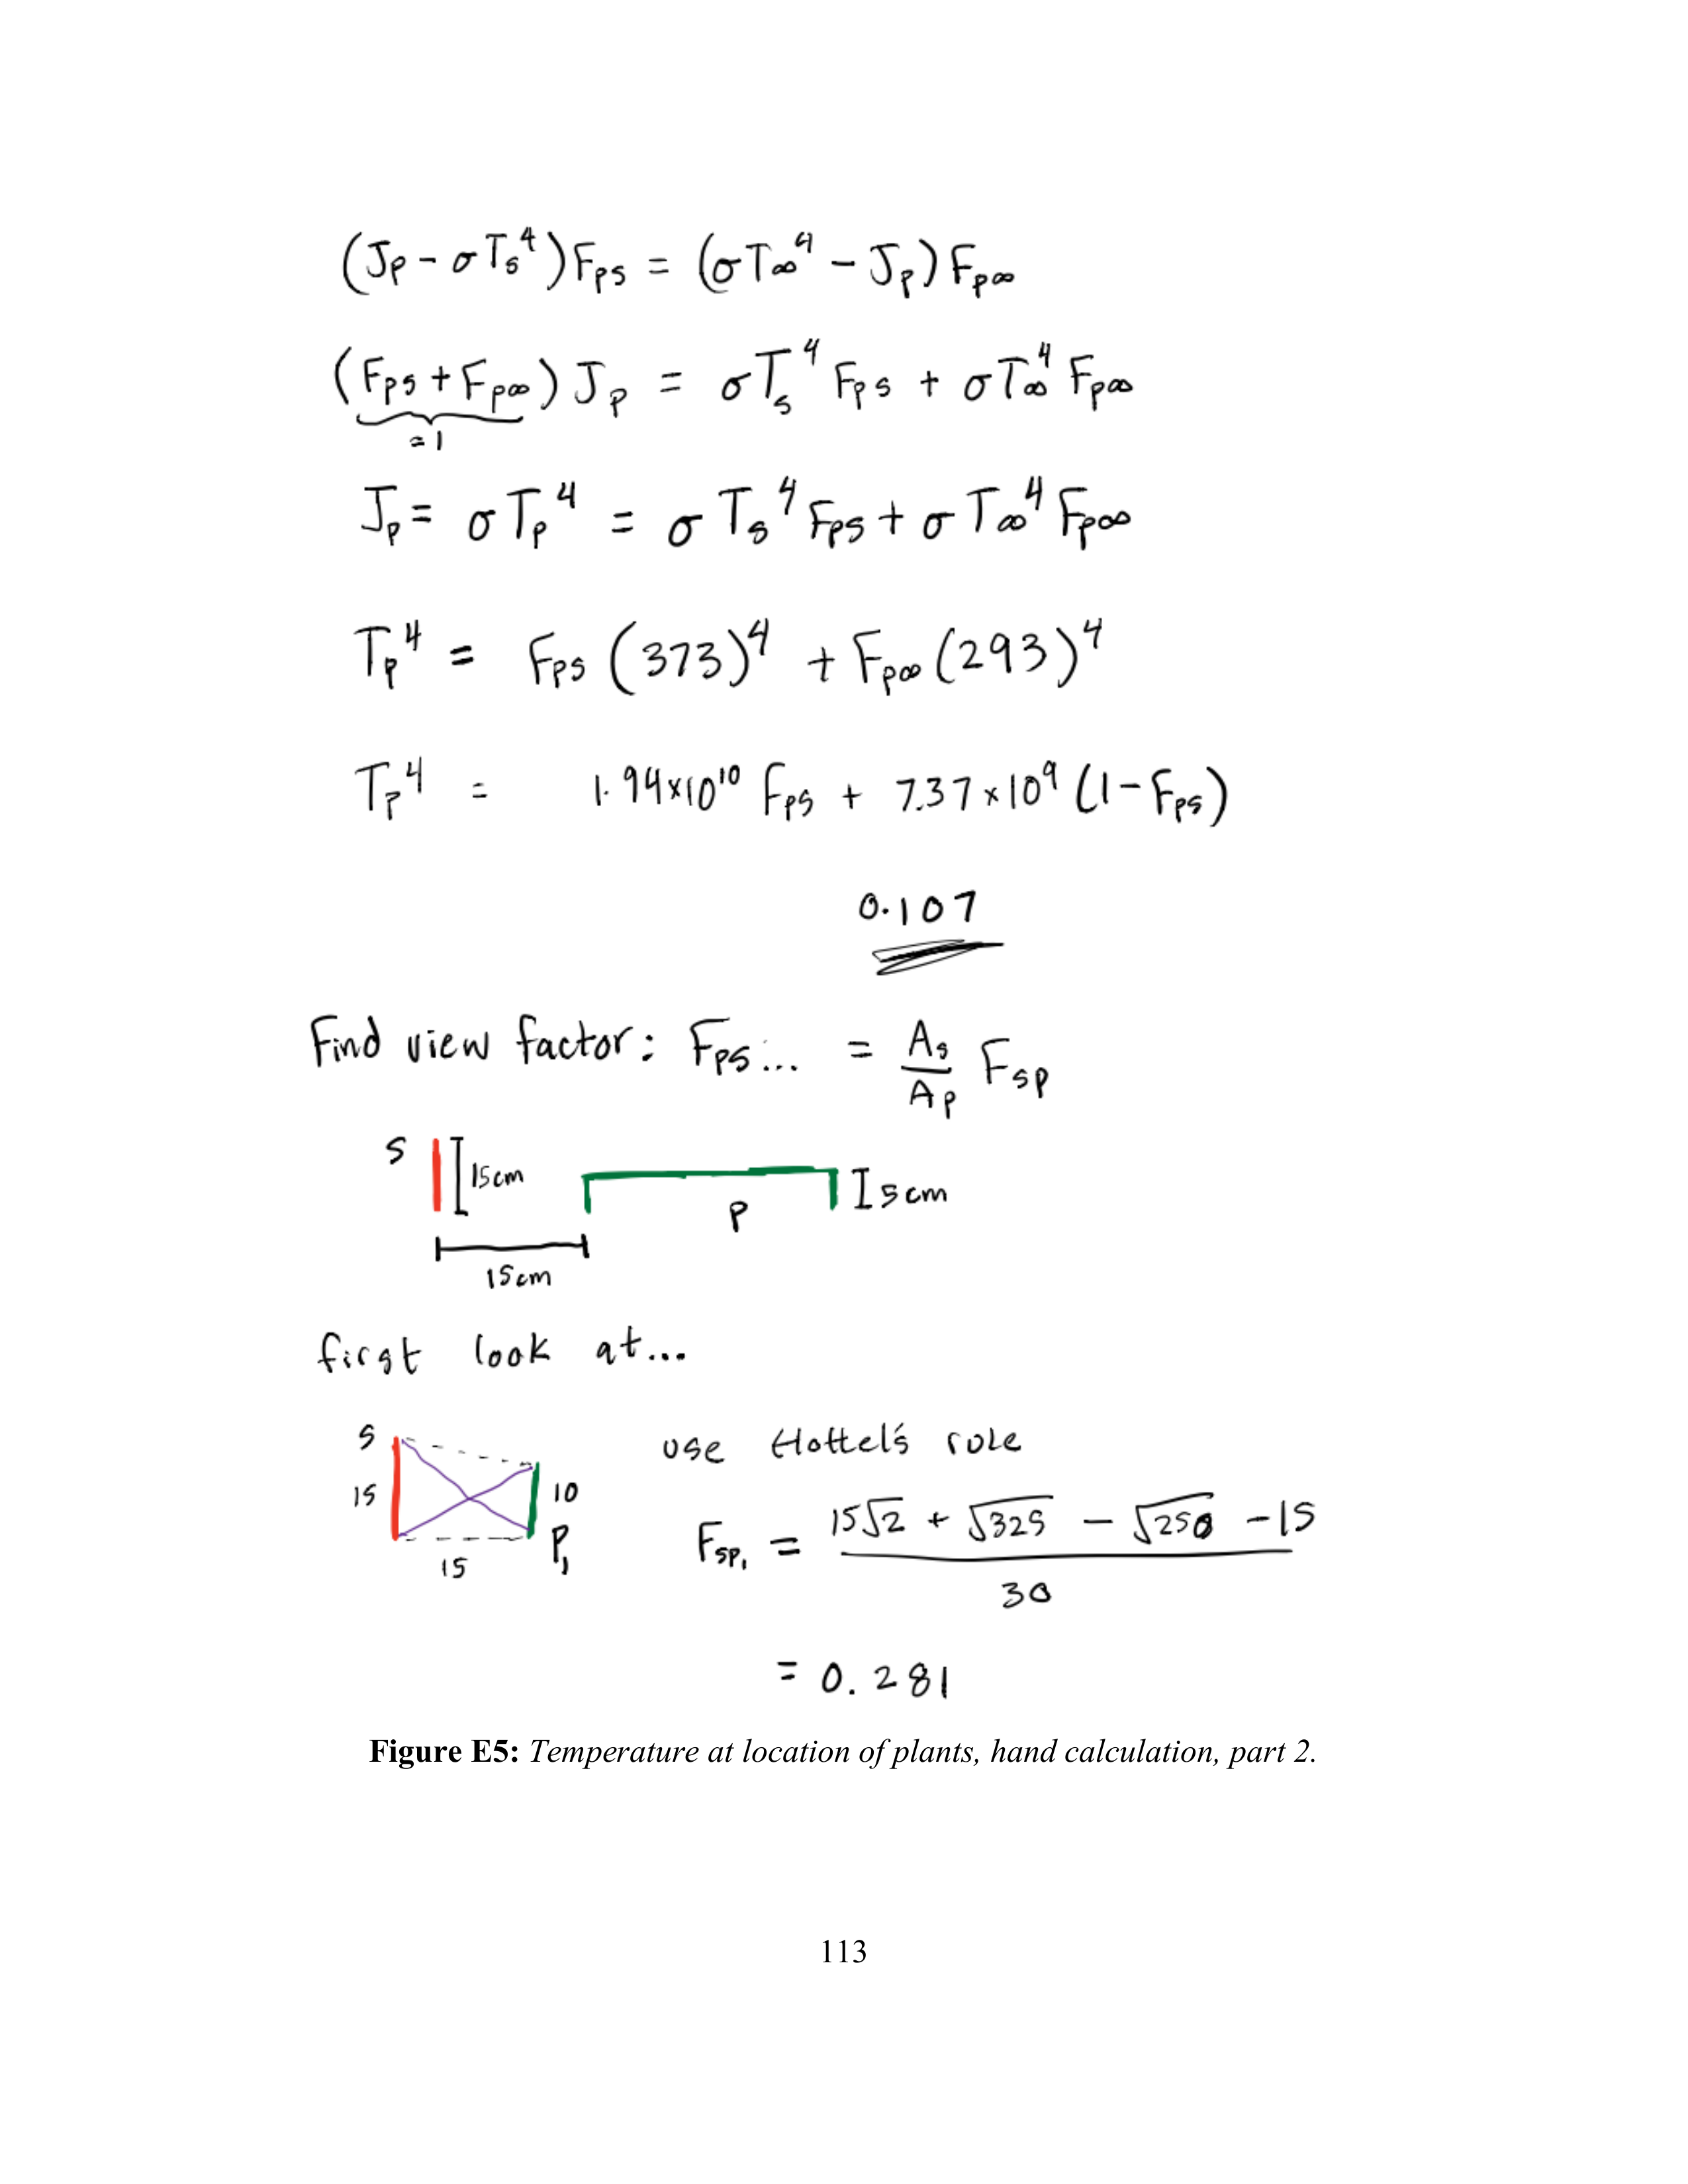 (Jp - σTs⁴)Fps = (σT∞⁴ - Jp)Fp∞
(Fps + Fp∞) Jp = σTs⁴ Fps + σT∞⁴ Fp∞
=1
Jp = σTp⁴ = σTs⁴ Fps + σT∞⁴ Fp∞
Tp⁴ = Fps (373)⁴ + Fp∞ (293)⁴
Tp⁴ = 1.94x10¹⁰ Fps + 7.37x10⁹ (1-Fps)
0.107
Find view factor: Fps... = As/Ap Fsp
S 15cm
P 5cm
15cm
first look at...
S
15 10
15 P₁
use Hottel's rule
Fsp₁ = (15√2 + √325 - √250 - 15)/30
= 0.281
Figure E5: Temperature at location of plants, hand calculation, part 2.
113